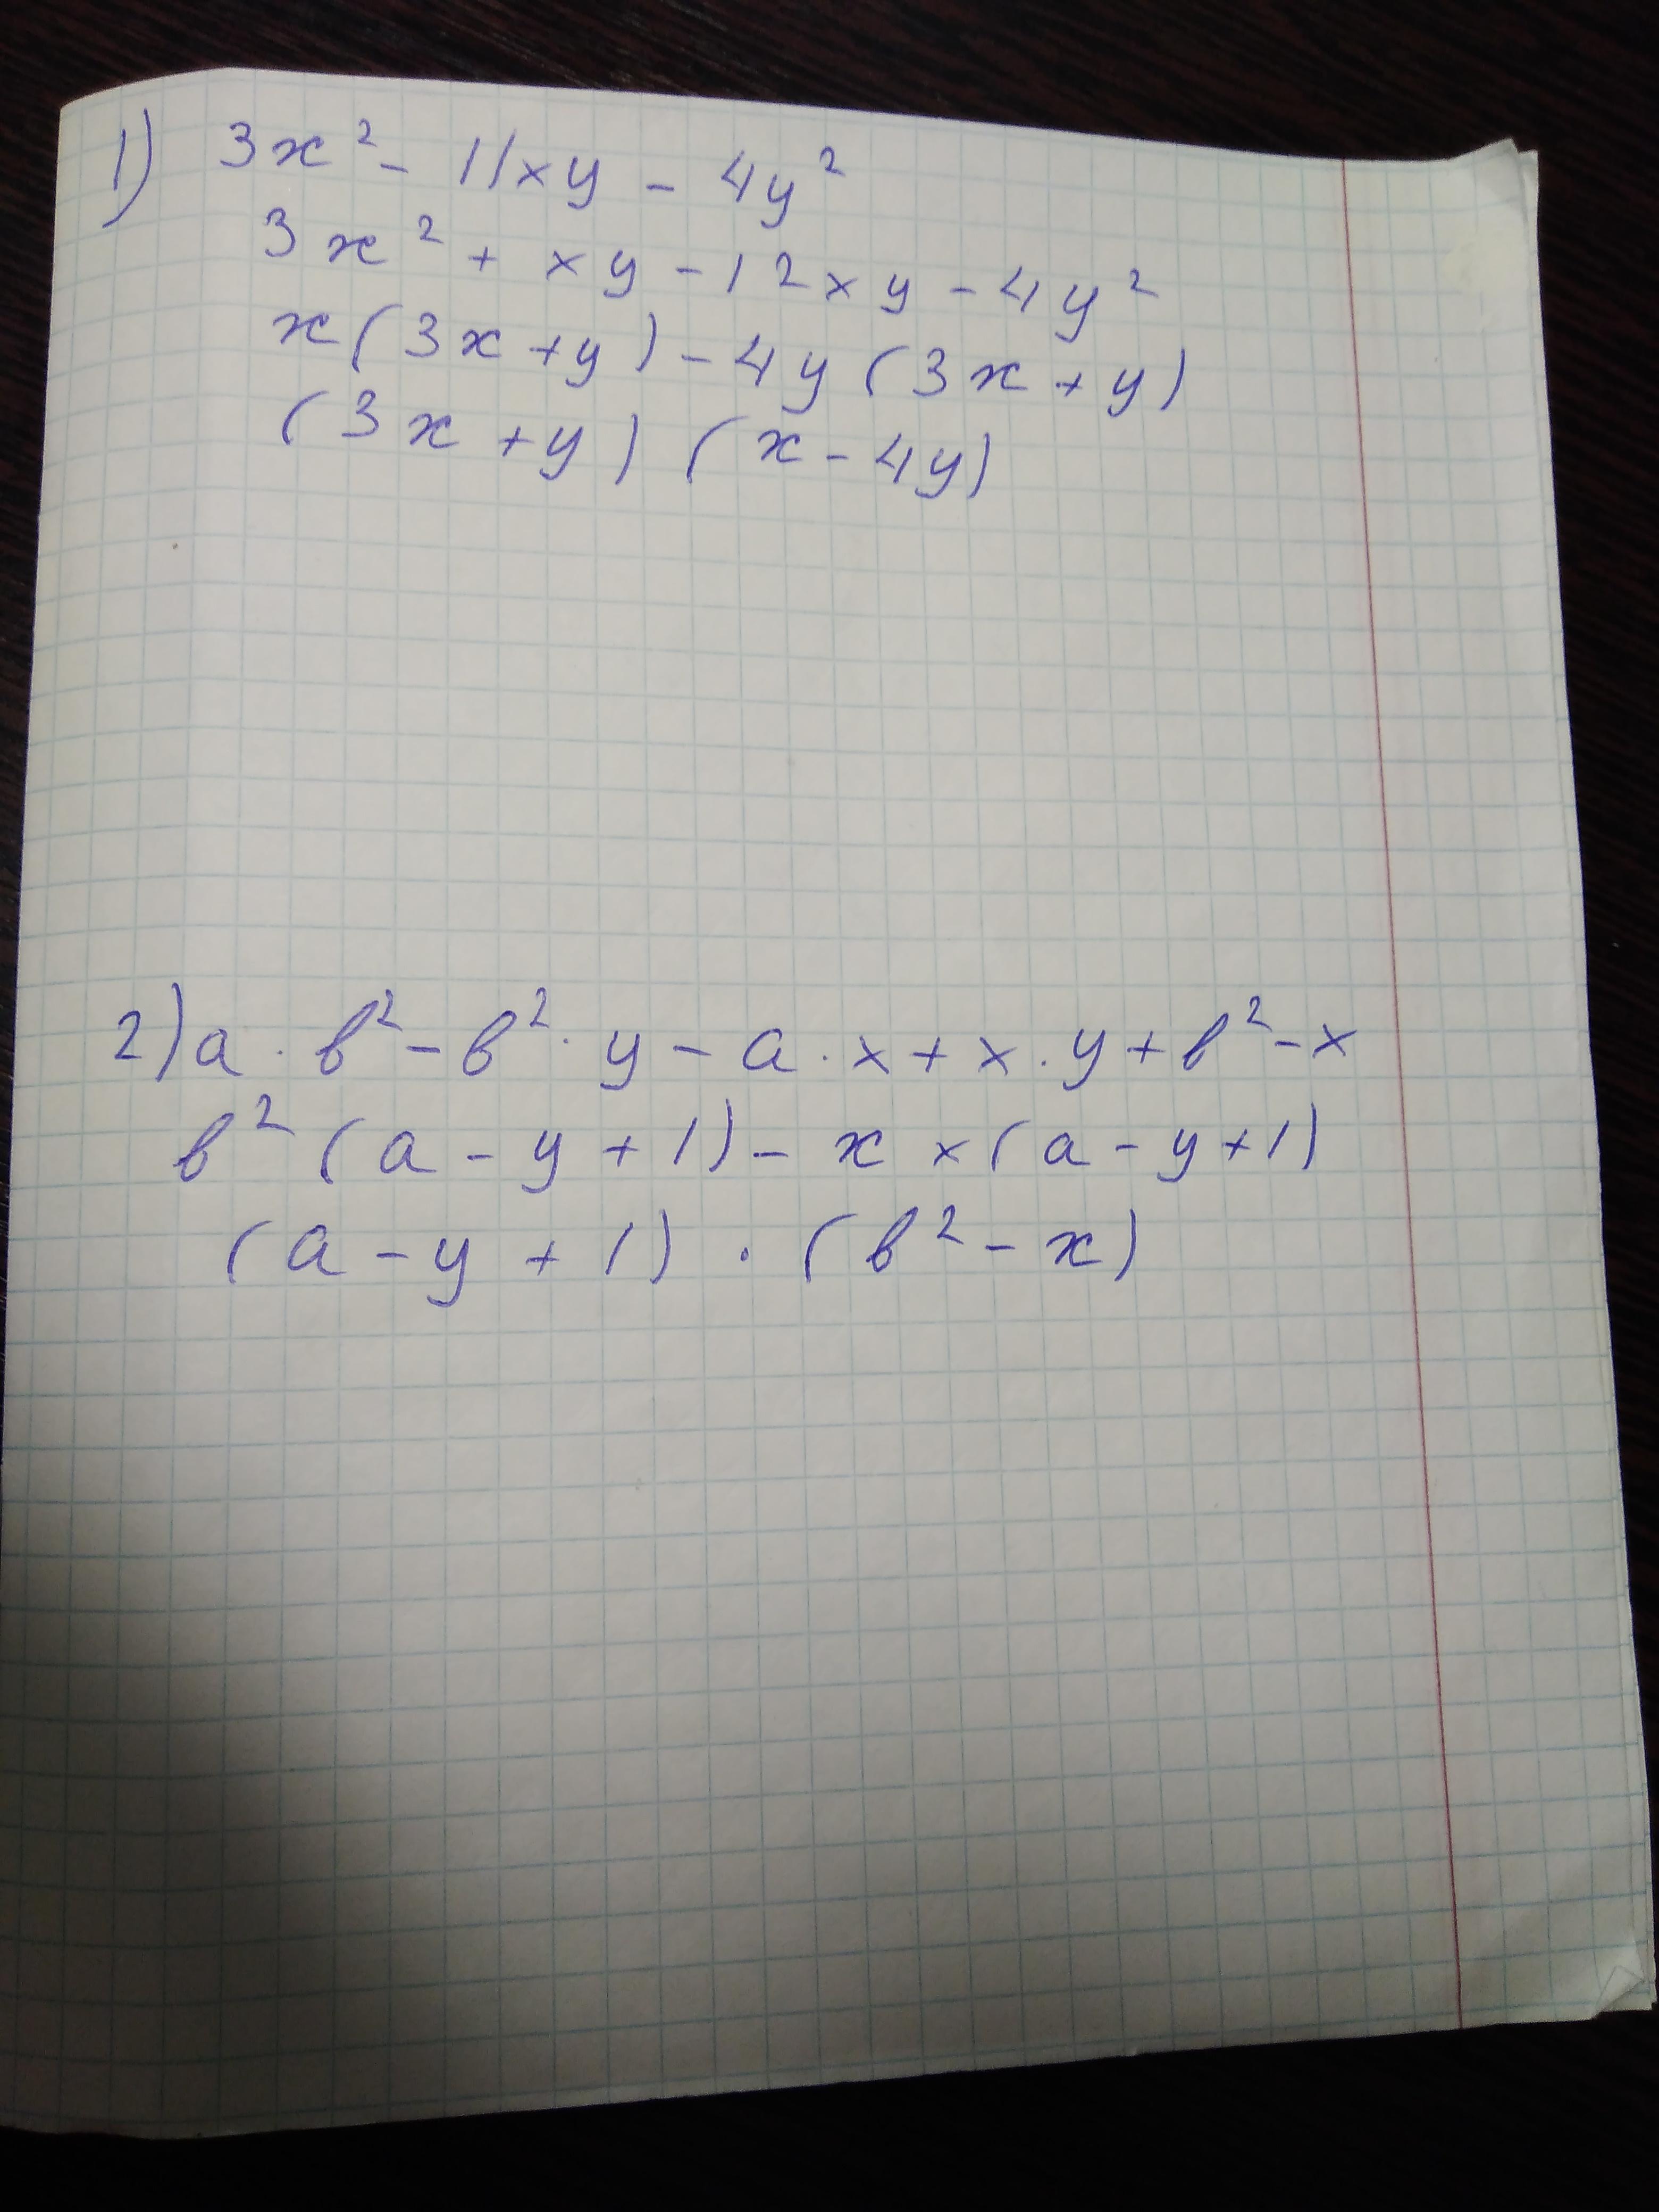 1) 3x² - 11xy - 4y²
3x² + xy - 12xy - 4y²
x(3x+y) - 4y(3x+y)
(3x+y)(x-4y)
2) a · b² - b² · y - a · x + x · y + b² - x
b²(a-y+1) - x × (a-y+1)
(a-y+1) · (b²-x)